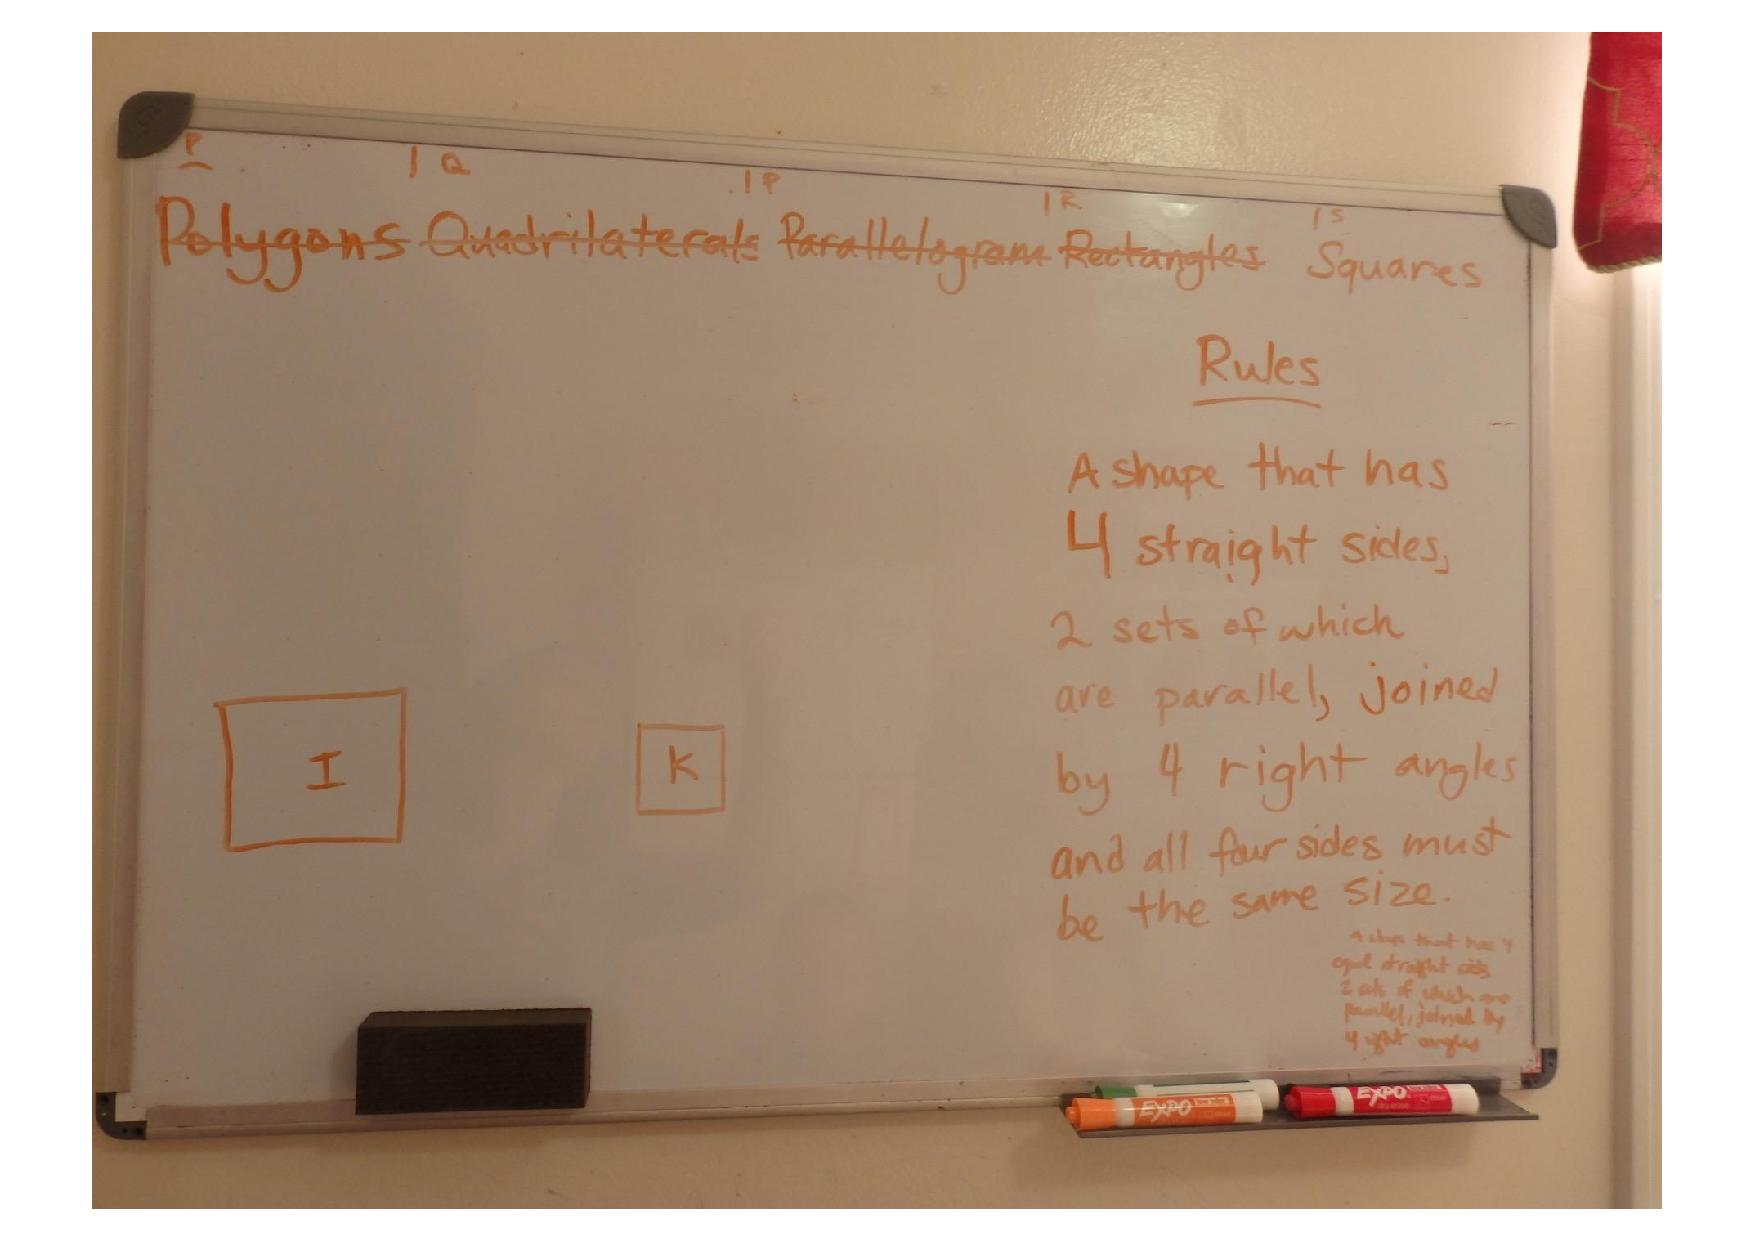 P | Q | P | R | S
Polygons Quadrilaterals Parallelogram Rectangles Squares
Rules
A shape that has
4 straight sides,
2 sets of which
are parallel, joined
by 4 right angles
and all four sides must
be the same size.
I
K
A shape that has 4
equal straight sides
2 sets of which are
parallel, joined by
4 right angles
EXPO
EXPO